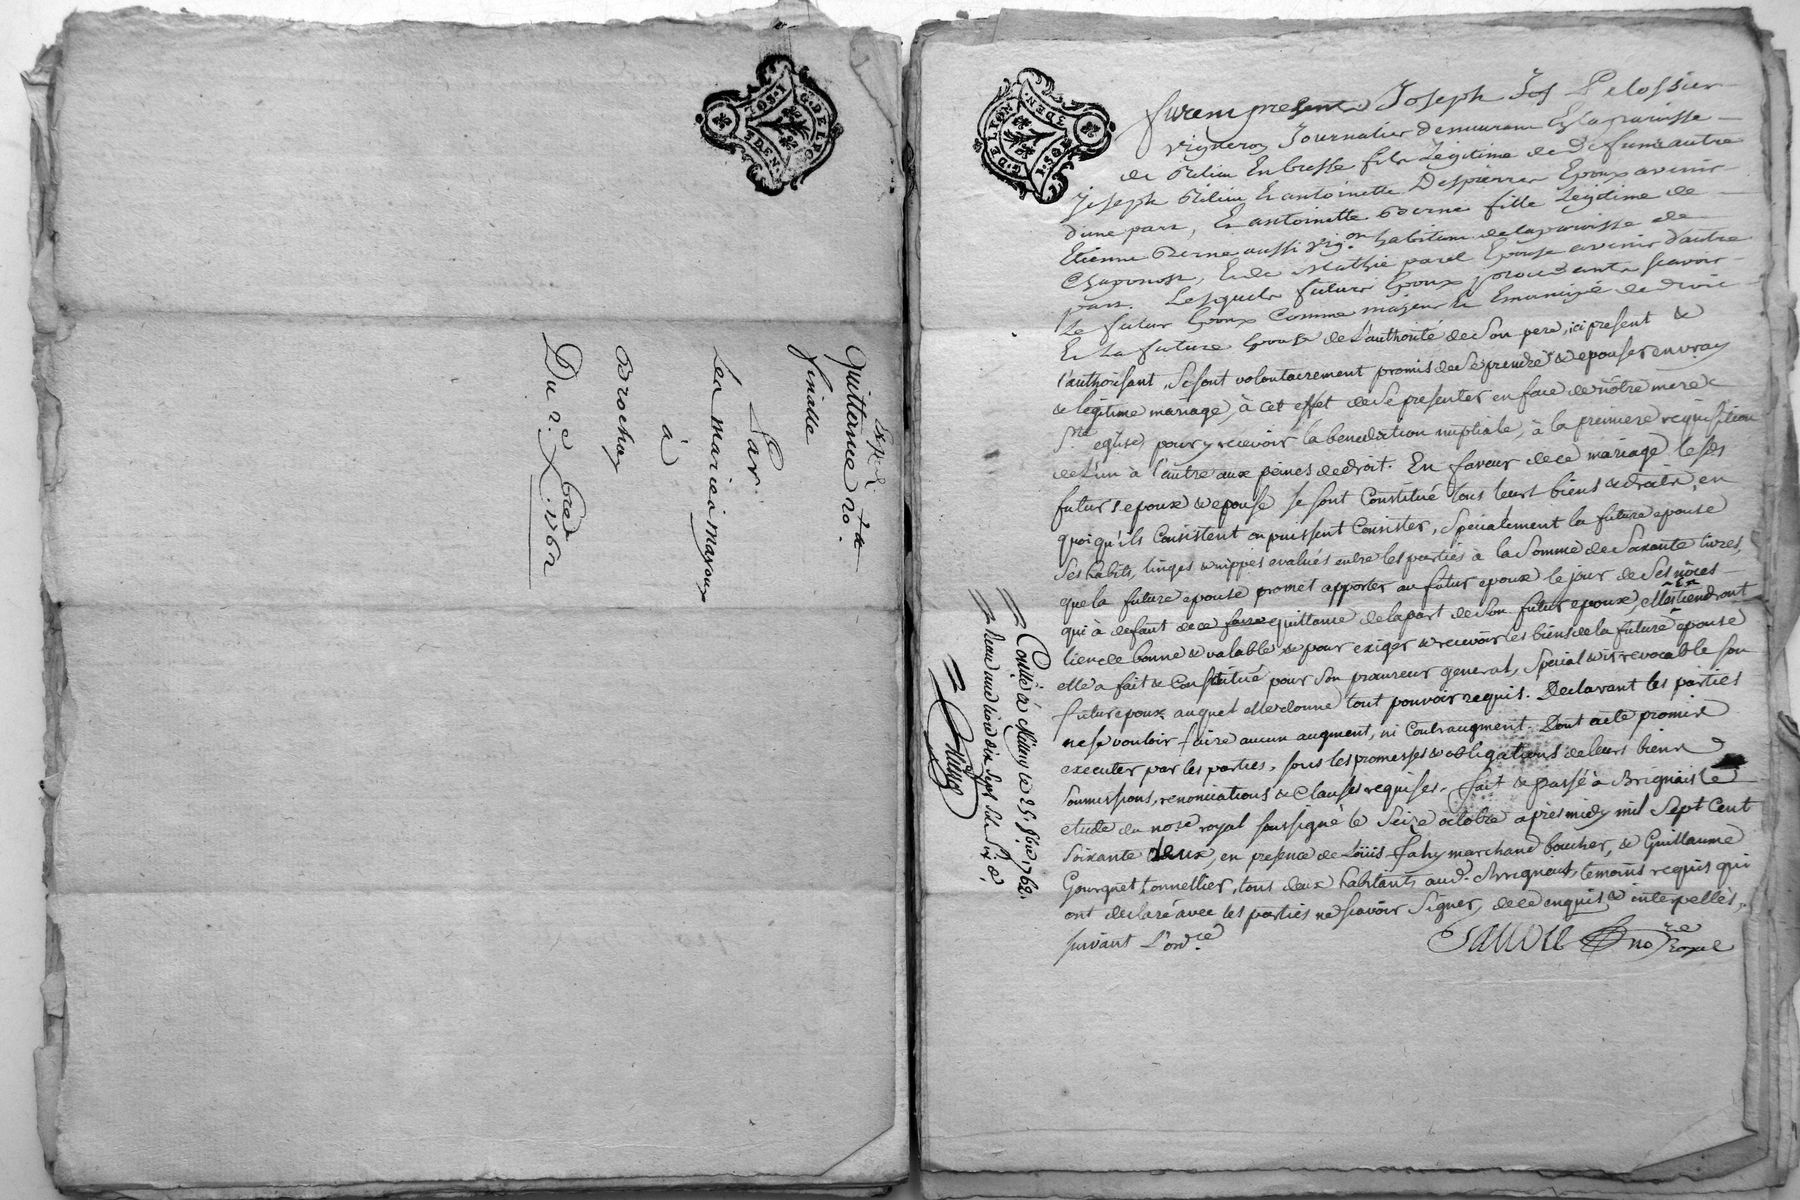 G. DE LYON
1. SOL. 4 DEN.
Expédié
Quittance
finalle
Par
Lea marie à maroux
à
Brochay
Du 2.e Xbre 1762
G. DE LYON
1. SOL. DEN.
furent presents Joseph Jos Pelossier
vigneron Journalier demeurant En la paroisse
de En bresse fils Légitime de defunt autre
Joseph Et antoinette Desparrer Epoux avenir
d'une part, Et antoinette Berne fille Légitime de
Etienne Berne aussi vig.on habitant de la paroisse de
Chaponost, Et de Mathie Epouse avenir d'autre
part. Lesquels futurs Epoux procedants scavoir
Le futur Epoux Comme majeur Et Emancipé de droit
Et La future Epouse de L'authorité de son pere, ici present &
l'authorisant, se sont volontairement promis de se prendre & epouser en vray
& legitime mariage, à cet effet de se presenter en face de nôtre mere
S.te eglise, pour y recevoir la benediction nuptiale, à la premiere requisition
de l'un à l'autre aux peines de droit. En faveur de ce mariage lesds
futurs epoux & epouse se sont Constitué tous leurs biens & droits, en
quoi qu'ils Consistent ou puissent Consister, specialement la future epouse
ses habits, linges & nippes evalués entre les parties à la somme de soixante livres,
que la future epouse promet apporter au futur epoux le jour de ses nôces
qui à defaut de ce quittance de la part de son futur epoux, elles en tiendront
lieu de bonne & valable & pour exiger & recevoir les biens de la future epouse
elle a fait & Constitué pour son procureur general, special & irrevocable son
futur epoux auquel elle donne tout pouvoir requis. Declarant les parties
ne se vouloir faire aucun augment, ni Contraugment. Dont acte promis
executer par les parties, sous les promesses & obligations de leurs biens
soumissions, renonciations & Clauses requises. fait & passé à Brignais
etude du no.re royal soussigné le seize octobre après midy mil sept Cent
soixante deux, en presence de Loüis Fahy marchand boucher, & Guillaume
Gourguet tonnellier, tous deux habitants aud. Brignais, temoins requis qui
ont declaré avec les parties ne scavoir signer, de ce enquis & interpellés,
suivant L'ord.ce
no.re royal
Conllé à le 25. 8bre 1762.
Reçu une livre dix sept sols six d.